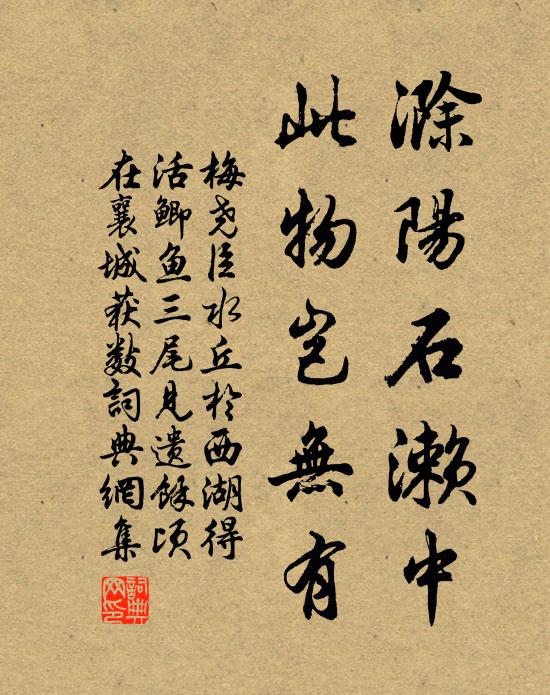 滁陽石瀨中
此物豈無有
梅尧臣水丘於西湖得
活鲫鱼三尾見遺餘頃
在襄城获数詞典網集
詞典網印